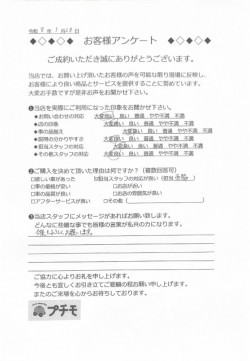 ◆◇◆◇◆ お客様アンケート ◆◇◆◇◆
ご成約いただき誠にありがとうございます。
当店では、お買い上げ頂いたお客様の声を可能な限り現場に反映し、
お客様により良い商品とサービスを提供することに努めています。
大変お手数ですが是非お声をお聞かせ下さい。
❶当店を実際にご利用になった印象をお聞かせ下さい。
・お問い合わせの対応 大変良い 良い 普通 やや不満 不満
・店の雰囲気 大変良い 良い 普通 やや不満 不満
・車の品揃え 大変良い 良い 普通 やや不満 不満
・説明の分かりやすさ 大変良い 良い 普通 やや不満 不満
・担当スタッフの対応 大変良い 良い 普通 やや不満 不満
・その他スタッフの対応 大変良い 良い 普通 やや不満 不満
❷ご購入を決めて頂いた理由は何ですか?(複数回答可)
□欲しい車があった □担当スタッフの対応が良い(担当
□車の最格が良い □お店の雰囲気
□車の程度が良い □お店の評判が良い
□アフターサービスが良い □その他(
❸当店スタッフにメッセージがあればお願い致します。
どんなに些細な事でも皆様の言葉が私供の力になります。
ご協力に心よりお礼を申し上げます。
今後とも宜しくお引き立てご愛顧の程お願い申し上げます。
またのご来場を心からお待ちしております。
プチモ